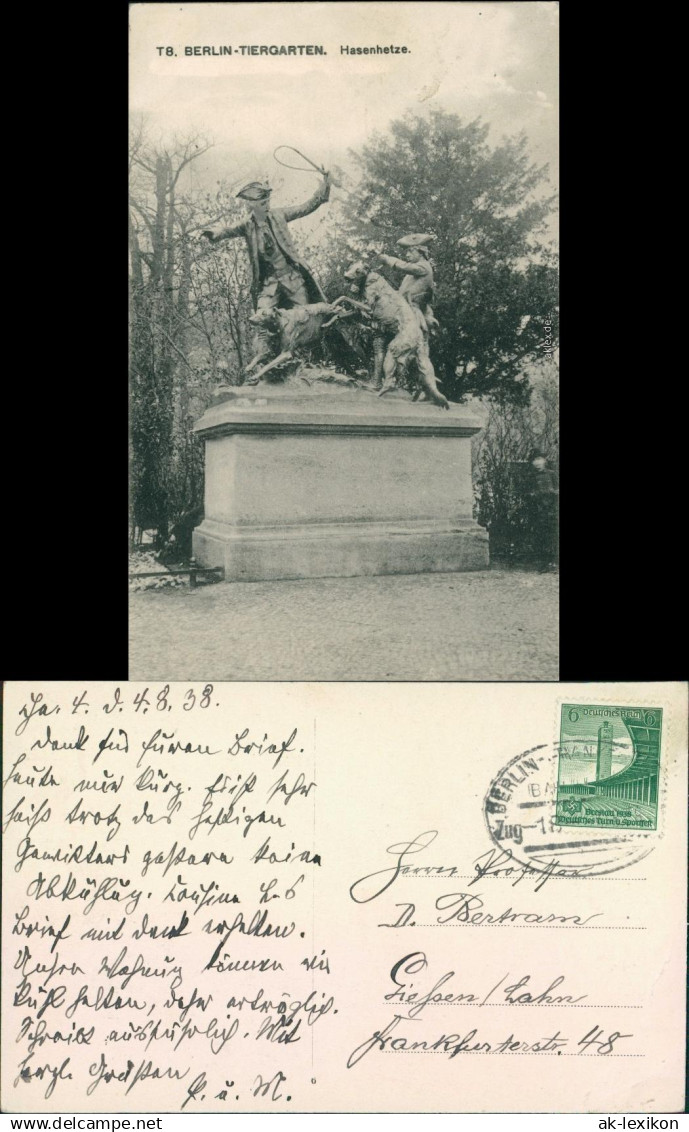 T8. BERLIN-TIERGARTEN. Hasenhetze.
aklex.de
4. d. 4.8.38.
Dank für Euren Brief.
Heute nur kurz. Es ist sehr
heiß trotz des heftigen
Gewitters gestern keine
Abkühlg. Cousine
Brief mit Dank erhalten.
Unsere Wohnung können wir
kühl halten, daher erträglich.
Schreibt ausführlich. Mit
herzl. Grüßen
E. u. M.
6 Deutsches Reich 6
Breslau 1938
Deutsches Turn u. Sportfest
BERLIN-
Zug
Herrn Professor
D. Bertram
Giessen/Lahn
Frankfurterstr. 48
www.delcampe.net
ak-lexikon